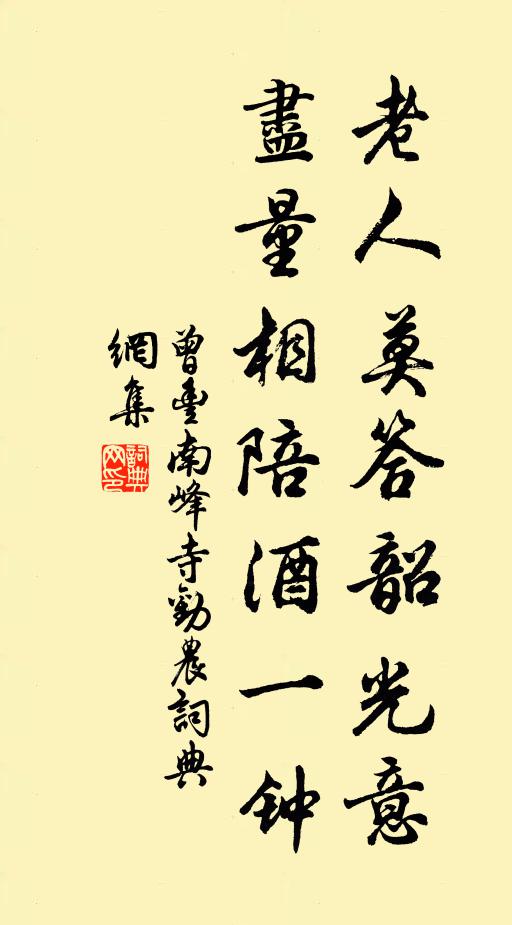 老人莫答韶光意
盡量相陪酒一钟
曾豐南峰寺勸農詞典
網集
詞典网印